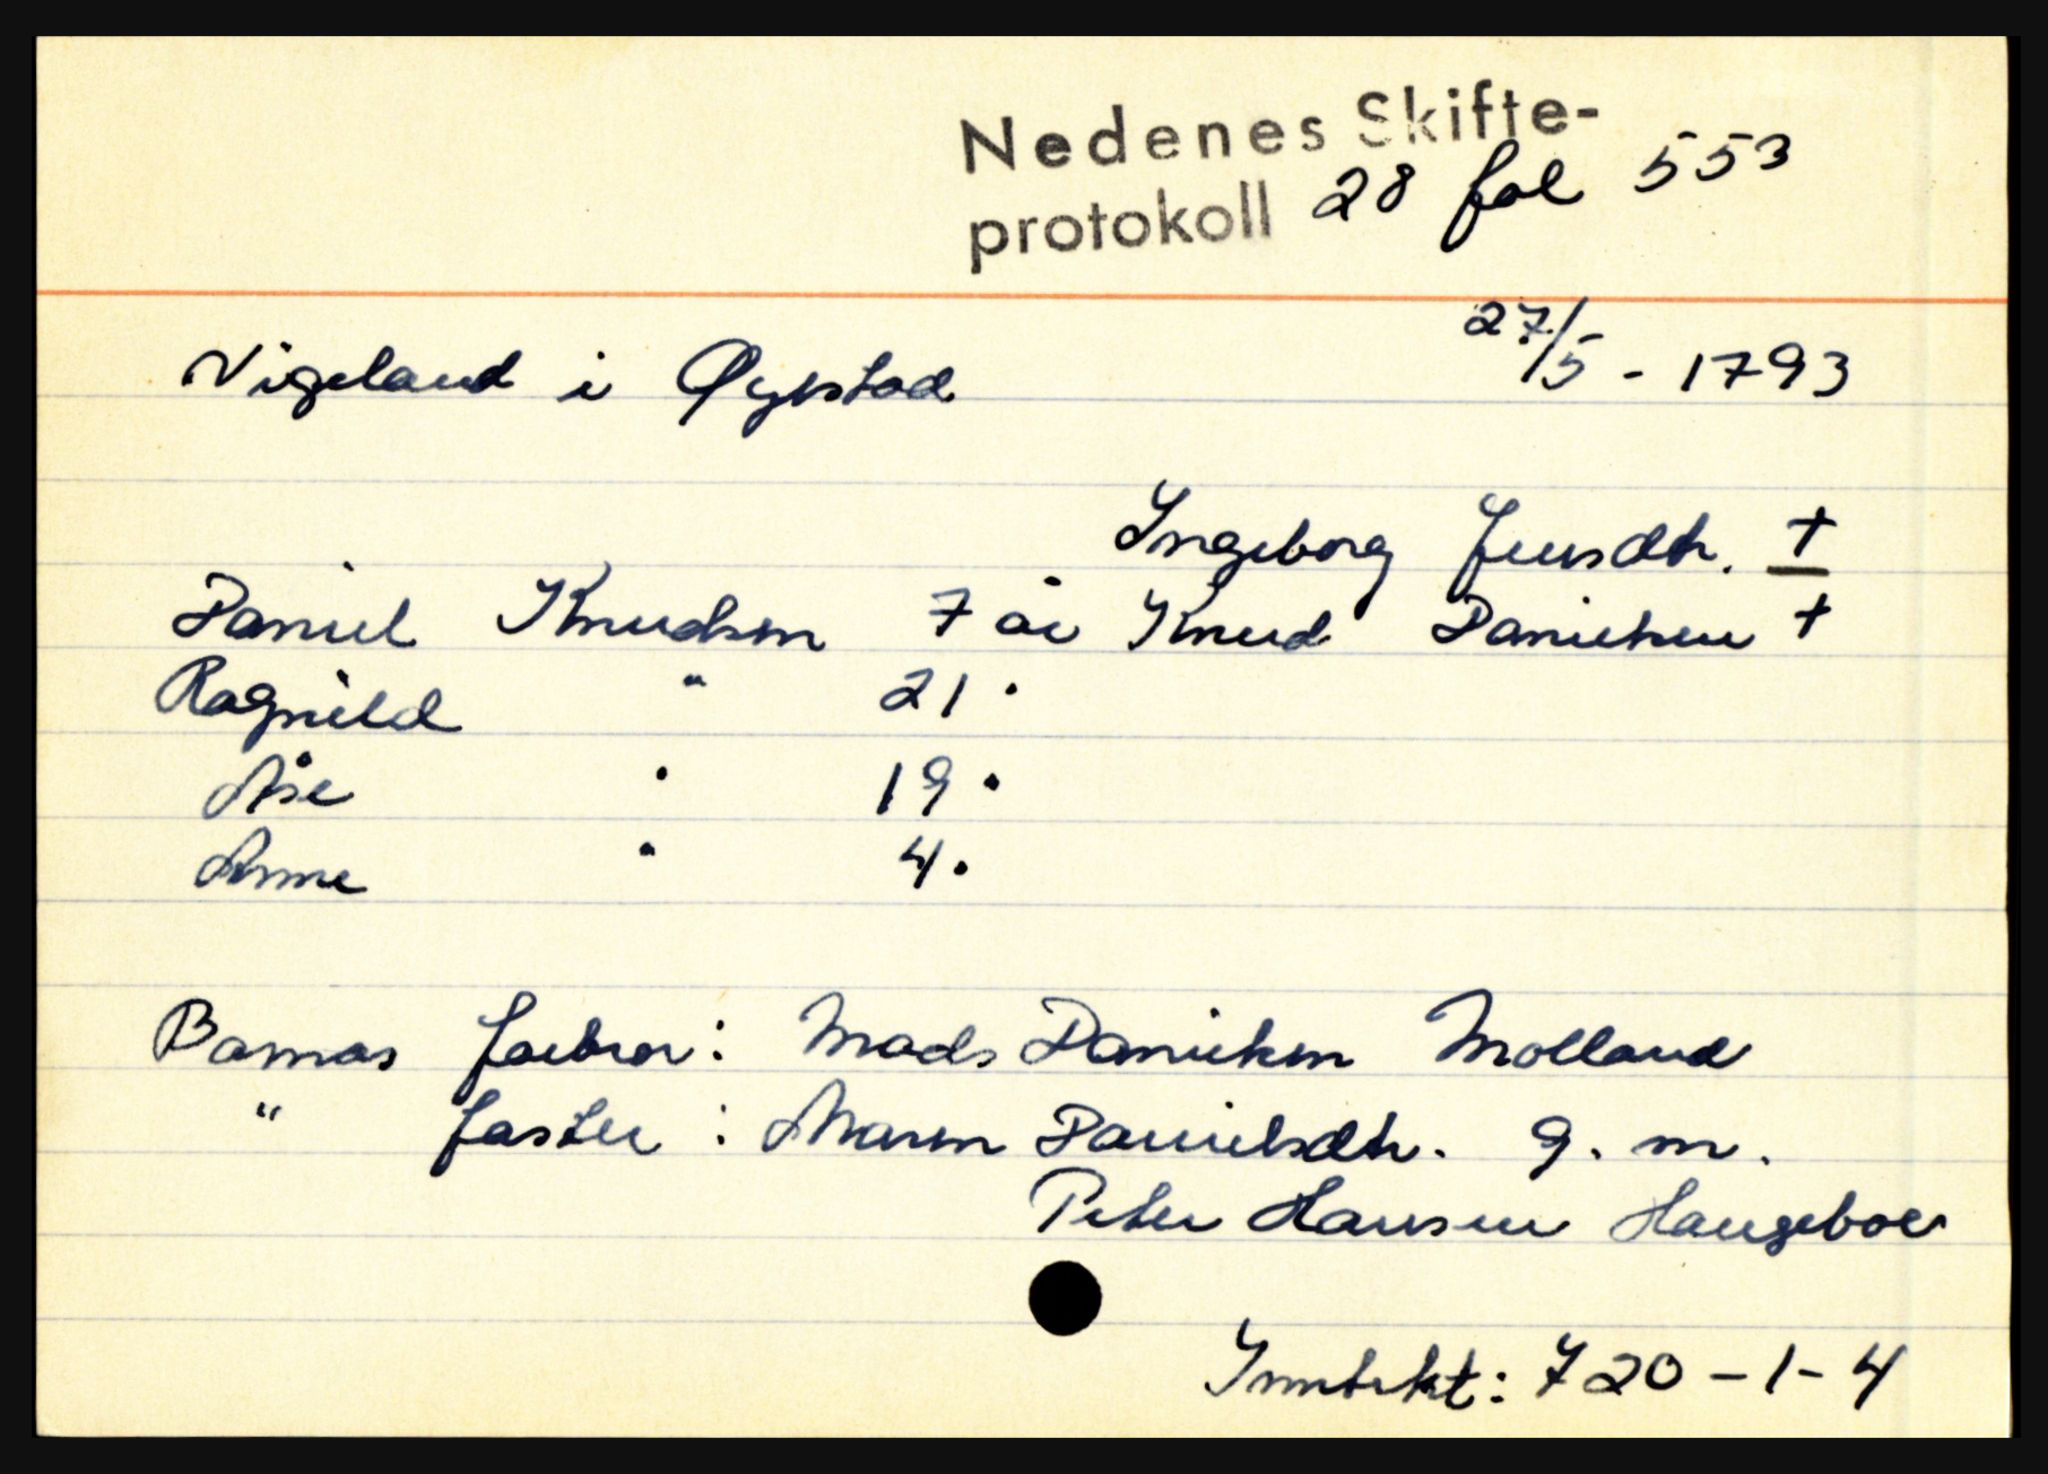 Nedenes Skifte-
protokoll 28 fol 553
27/5 - 1793
Vigeland i Øyestad
Ingeborg Jensdtr. †
Daniel Knudsen 7 år Knud Danielsen †
Ragnild " 21 "
Åse " 19 "
Anne " 4 "
Barnas farbror: Mads Danielsen Molland
" faster: Maren Danielsdtr. g. m.
Peter Hansen Haugeboe
Inntekt: 720 - 1 - 4